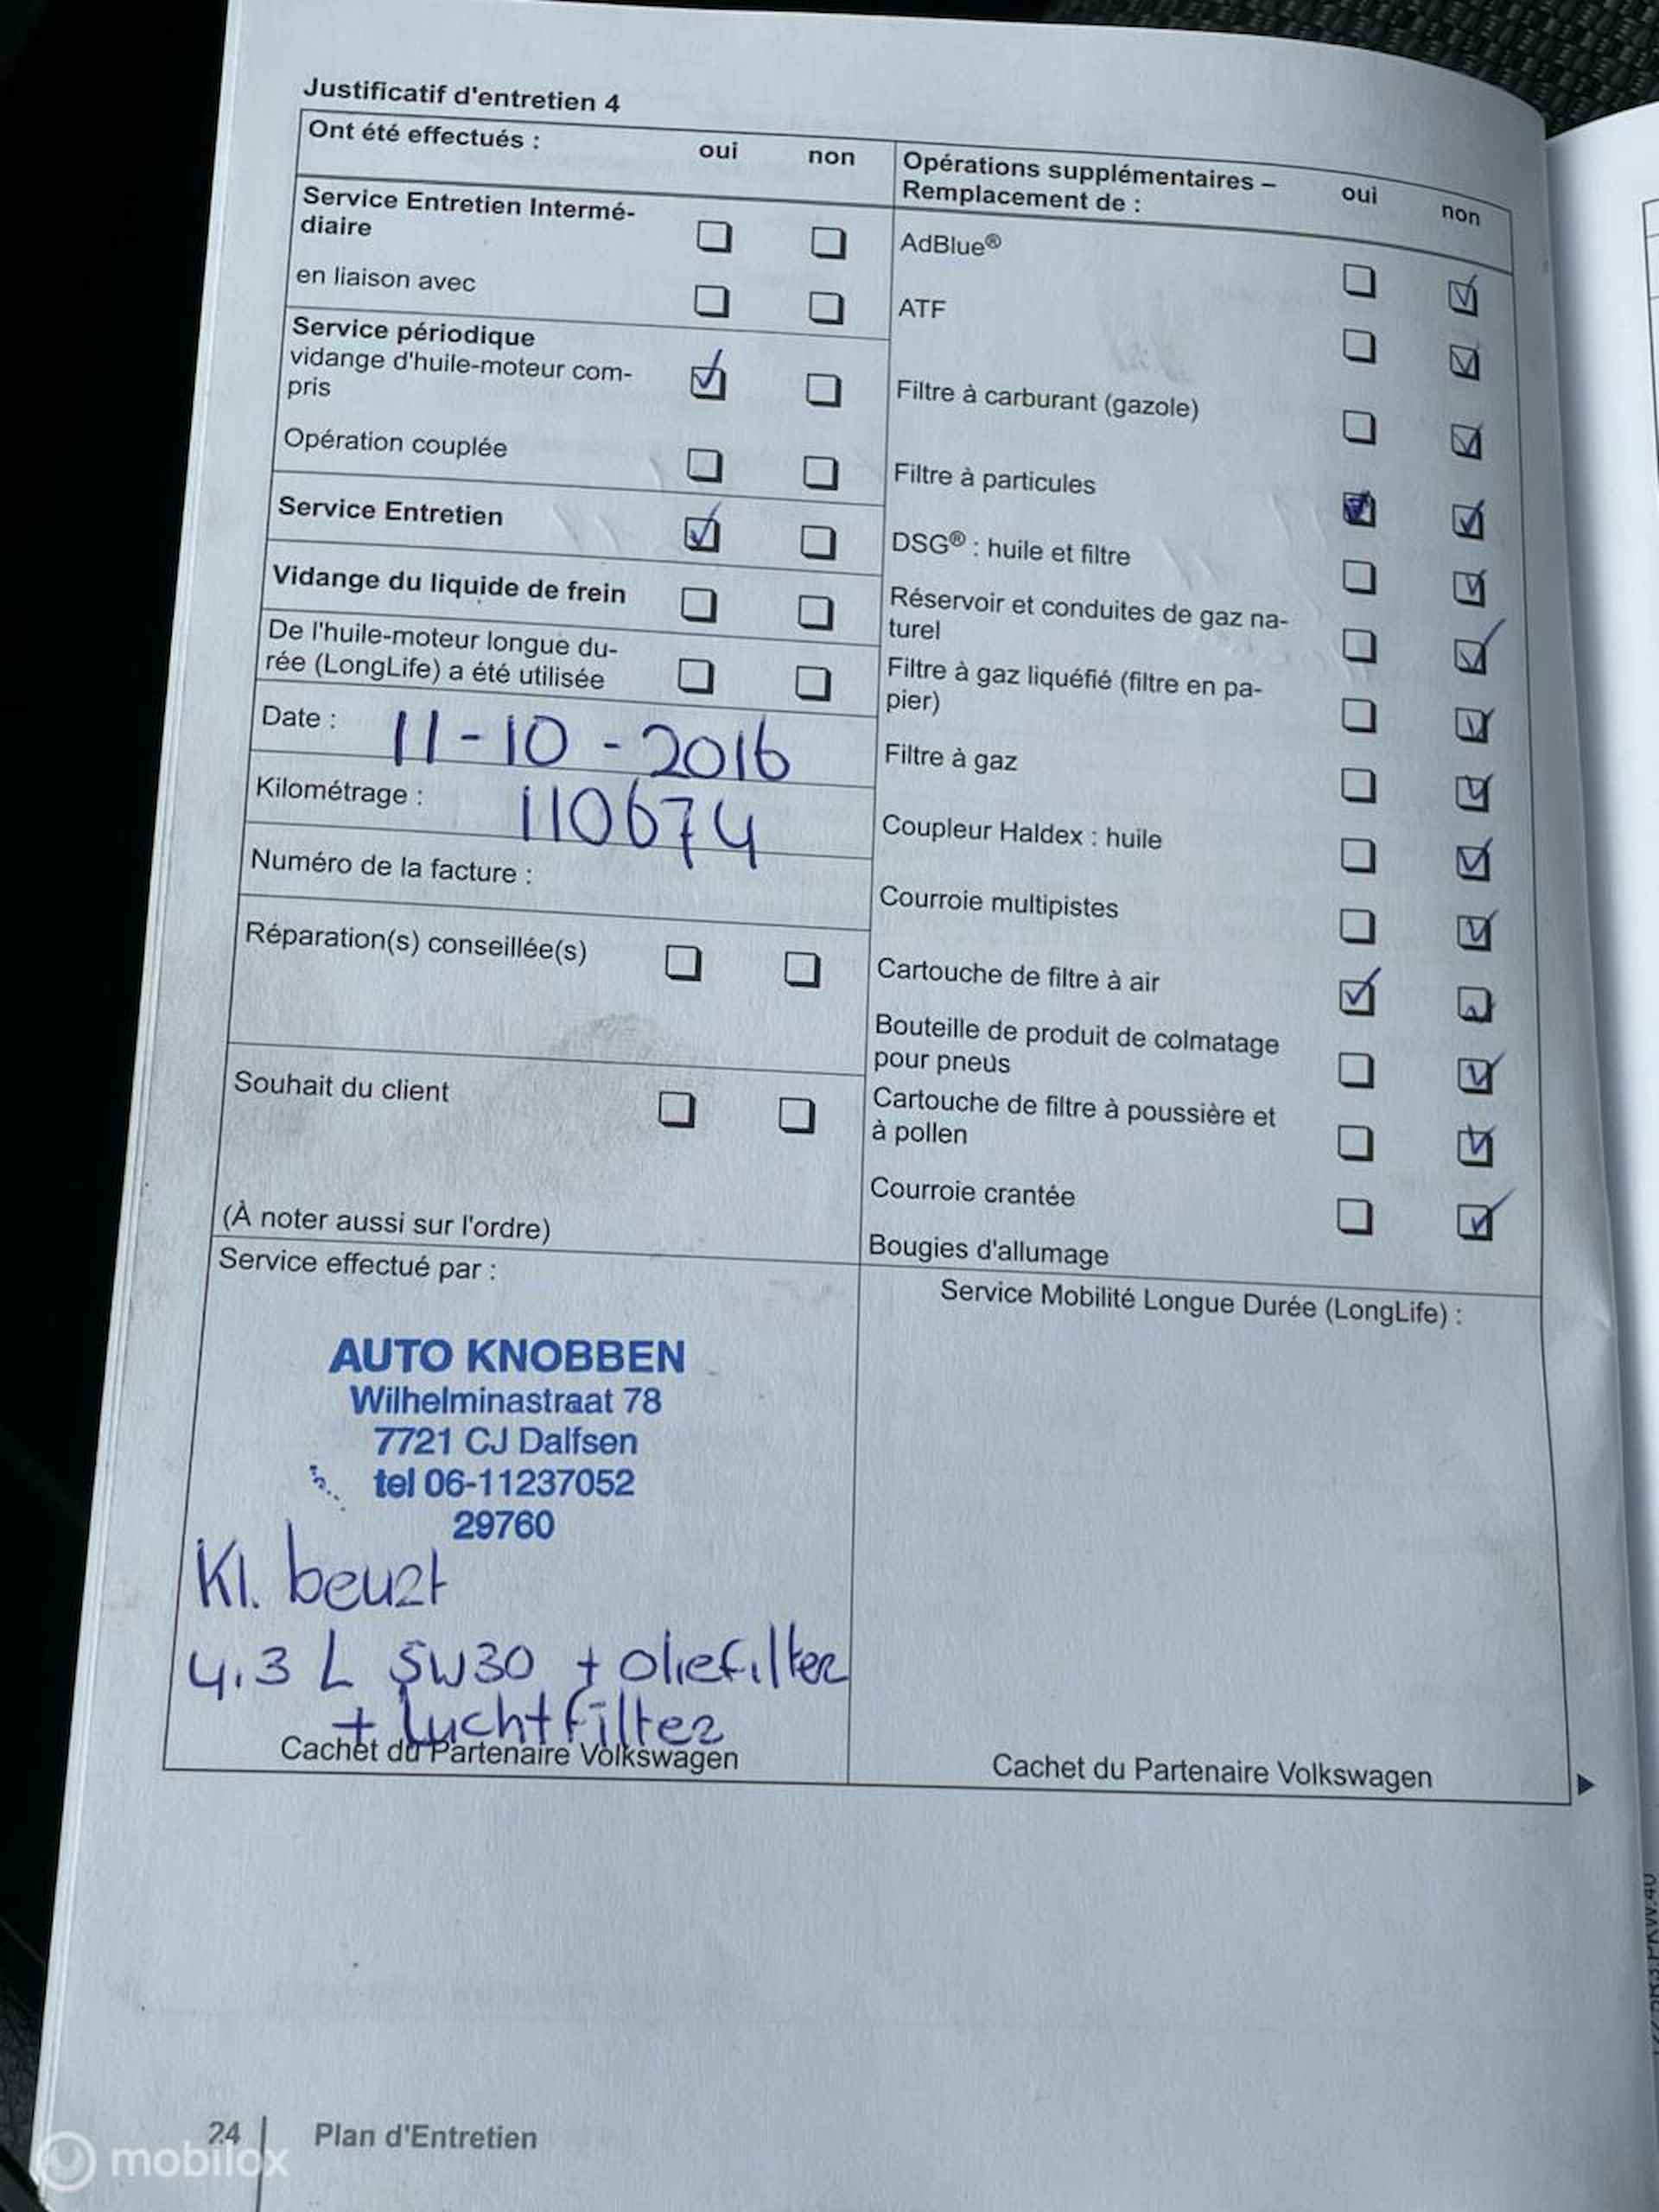 Justificatif d'entretien 4
Ont été effectués :
oui
non
Service Entretien Intermé-
diaire
en liaison avec
Service périodique
vidange d'huile-moteur com-
pris
Opération couplée
Service Entretien
Vidange du liquide de frein
De l'huile-moteur longue du-
rée (LongLife) a été utilisée
Date : 11-10-2016
Kilométrage : 110674
Numéro de la facture :
Réparation(s) conseillée(s)
Souhait du client
(À noter aussi sur l'ordre)
Opérations supplémentaires –
Remplacement de :
oui
non
AdBlue®
ATF
Filtre à carburant (gazole)
Filtre à particules
DSG® : huile et filtre
Réservoir et conduites de gaz na-
turel
Filtre à gaz liquéfié (filtre en pa-
pier)
Filtre à gaz
Coupleur Haldex : huile
Courroie multipistes
Cartouche de filtre à air
Bouteille de produit de colmatage
pour pneus
Cartouche de filtre à poussière et
à pollen
Courroie crantée
Bougies d'allumage
Service effectué par :
AUTO KNOBBEN
Wilhelminastraat 78
7721 CJ Dalfsen
tel 06-11237052
29760
Kl. beurt
4.3 L 5W30 + oliefilter
+ luchtfilter
Cachet du Partenaire Volkswagen
Service Mobilité Longue Durée (LongLife) :
Cachet du Partenaire Volkswagen
24
Plan d'Entretien
mobilox